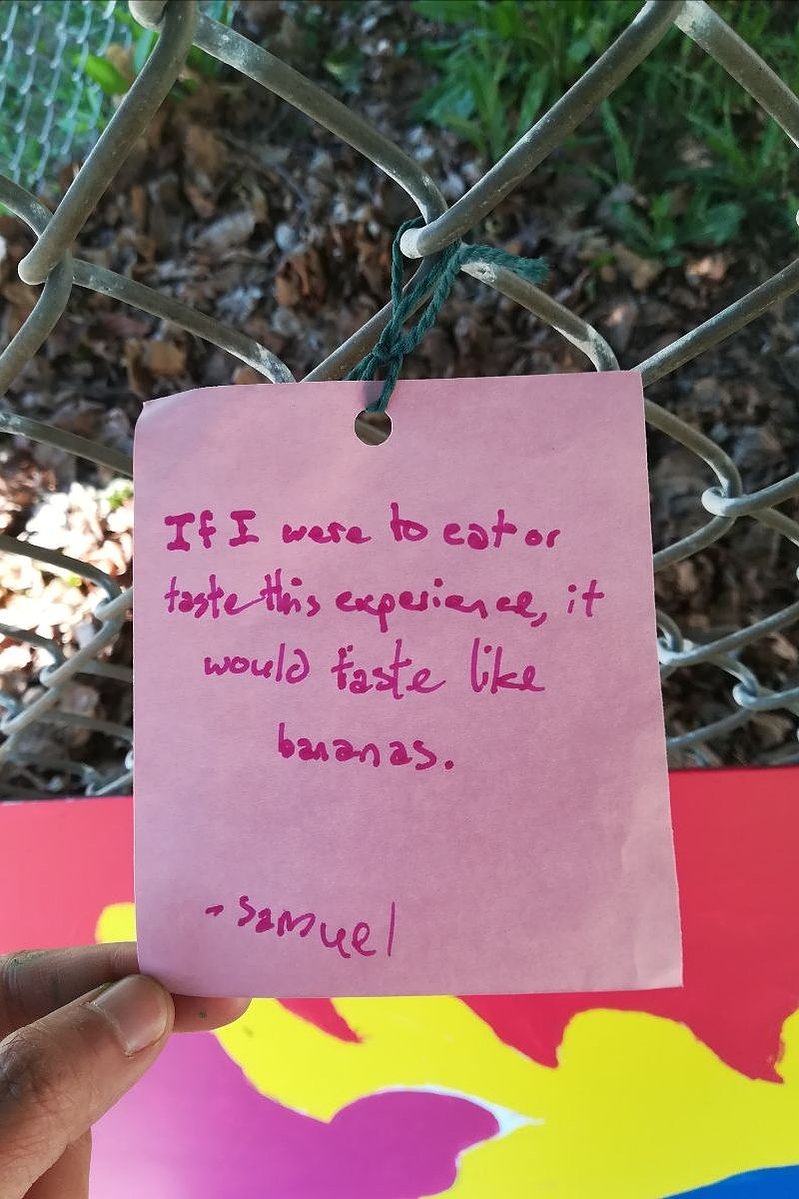 If I were to eat or
taste this experience, it
would taste like
bananas.
- Samuel